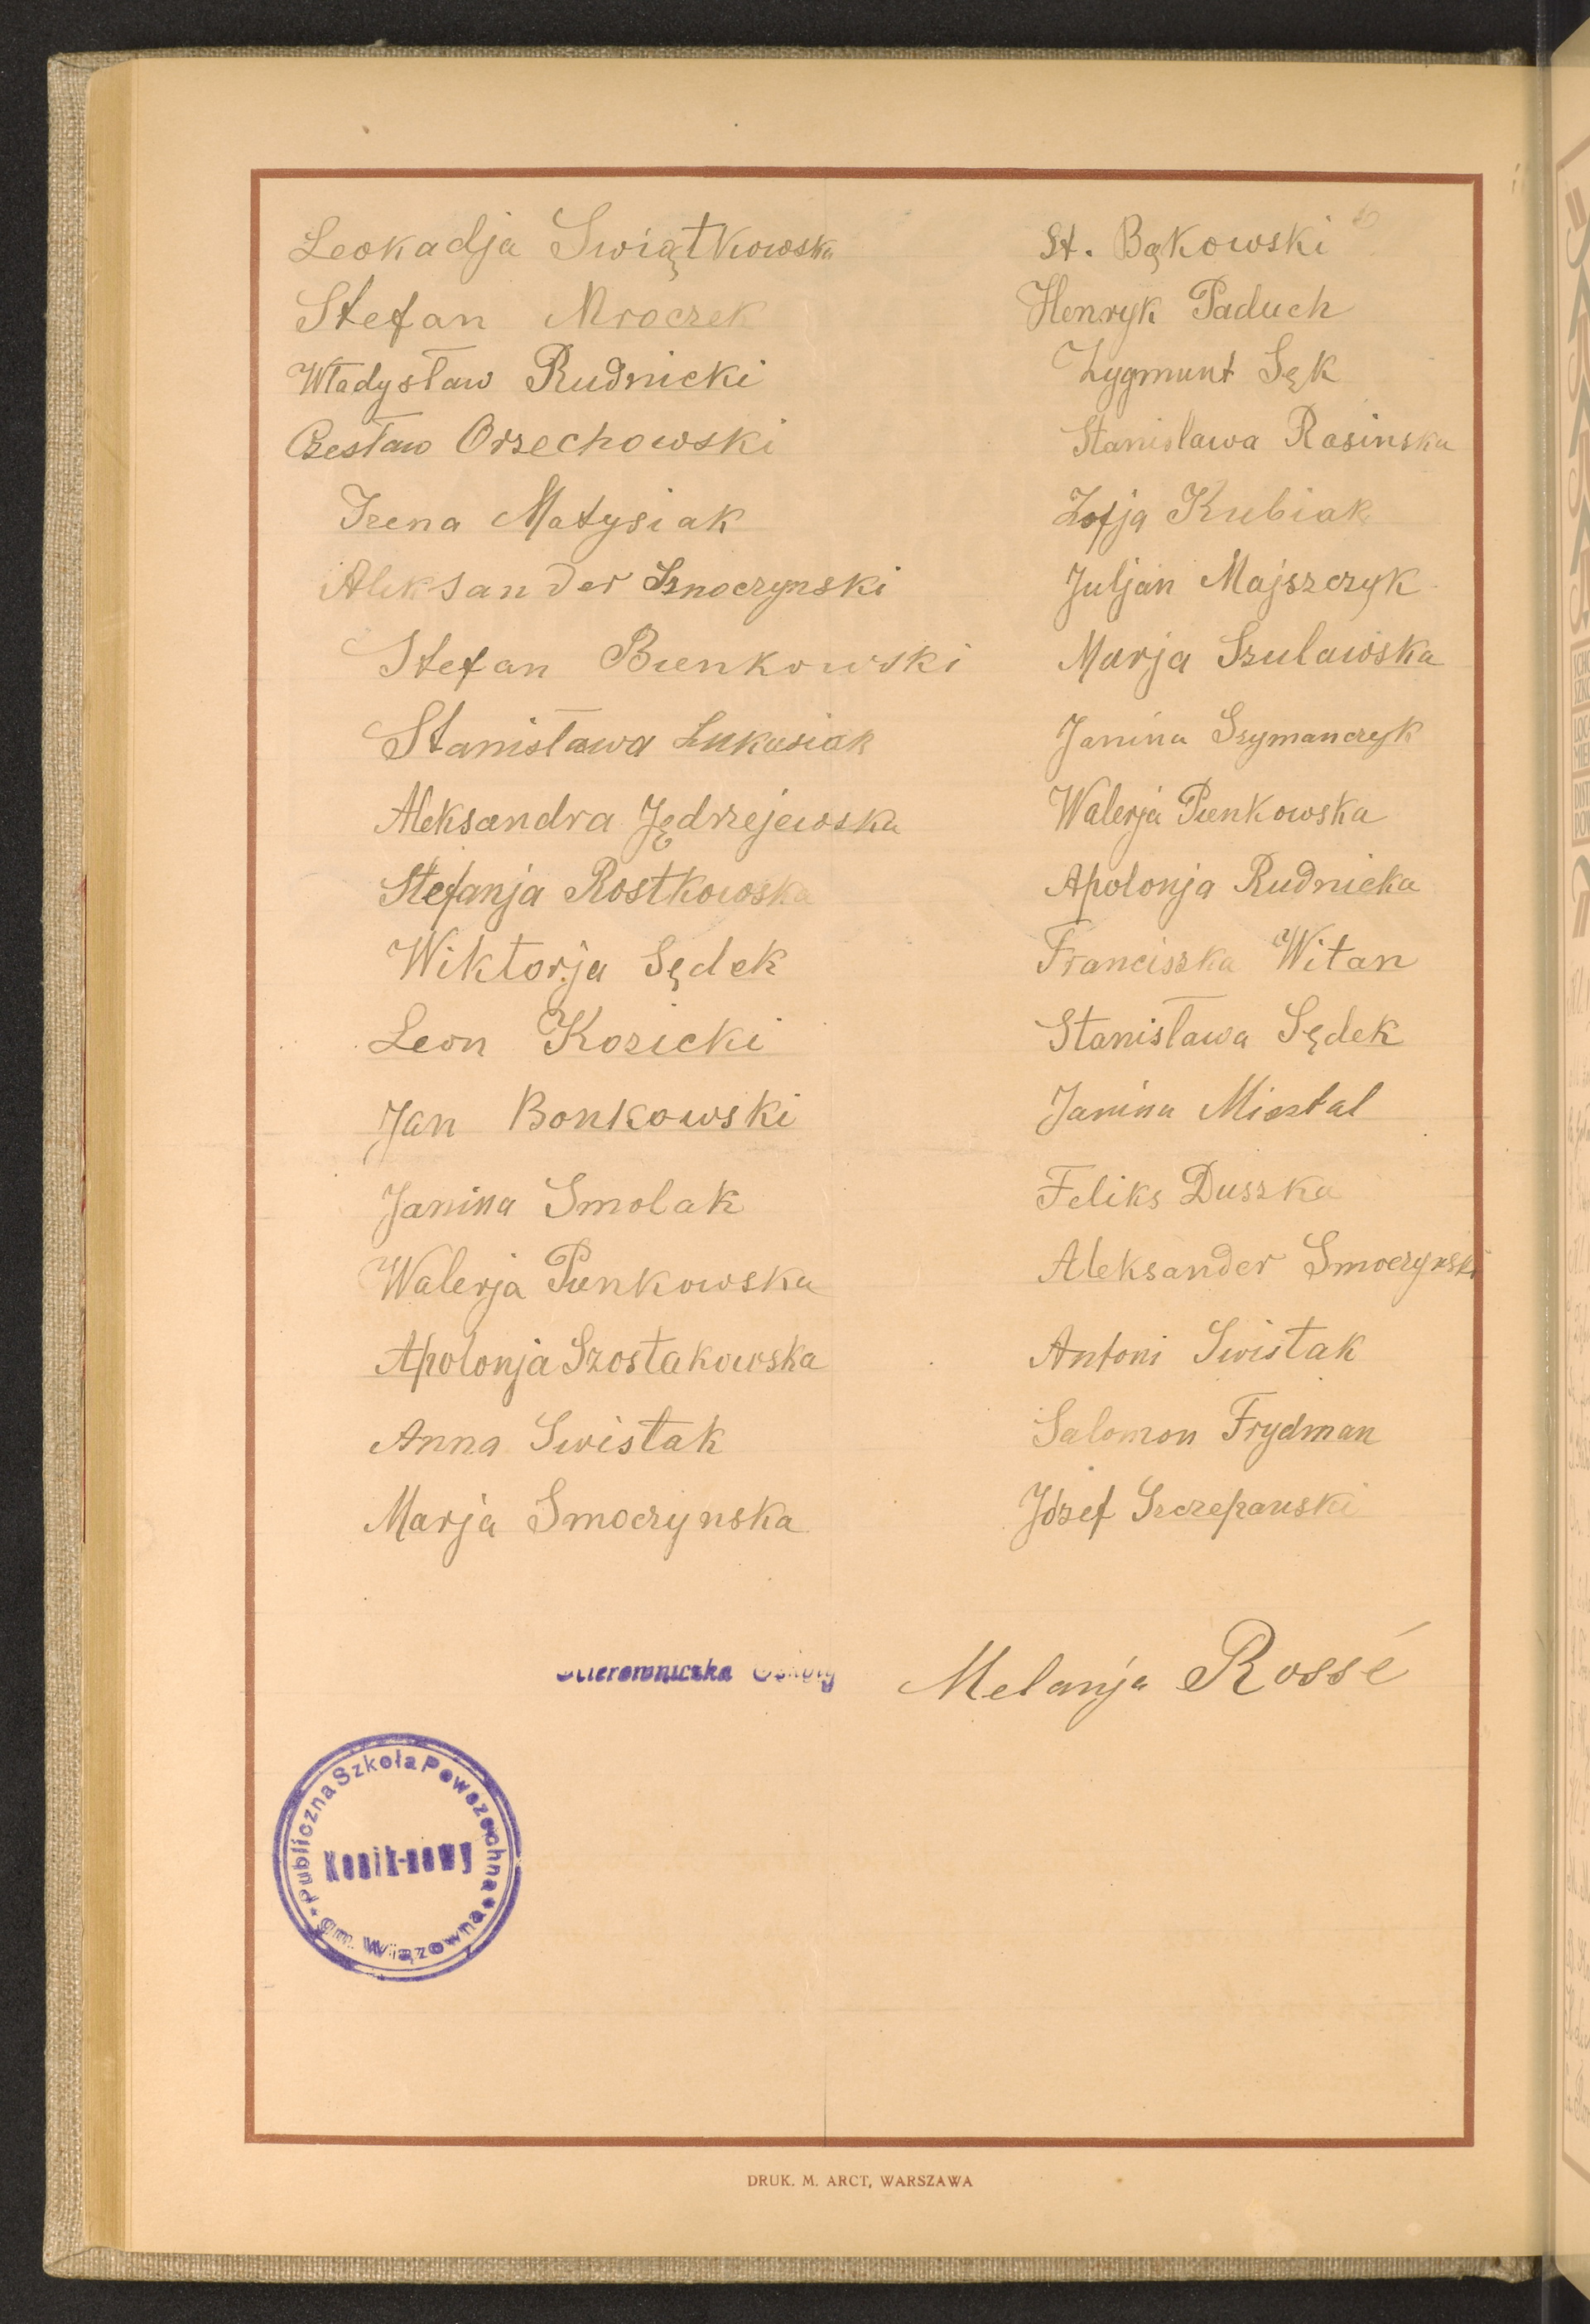 Leokadja Swiątkowska
Stefan Mroczek
Władysław Rudnicki
Czesław Orzechowski
Irena Matysiak
Aleksander Smoczynski
Stefan Bienkowski
Stanisława Lukasiak
Aleksandra Jędrzejewska
Stefanja Rostkowska
Wiktorja Sędek
Leon Kozicki
Jan Bonkowski
Janina Smolak
Walerja Pienkowska
Apolonja Szostakowska
Anna Swistak
Marja Smoczynska
St. Bąkowski
Henryk Paduch
Zygmunt Sęk
Stanislawa Rosinska
Zofja Kubiak
Juljan Majszczyk
Marja Szulawska
Janina Szymanczyk
Walerja Pienkowska
Apolonja Rudnicka
Franciszka Witan
Stanisława Sędek
Janina
Feliks Duszka
Aleksander Smoczynski
Antoni Swistak
Salomon Frydman
Józef Szczepanski
Kierowniczka Szkoły
Melanja Rossé
Publiczna Szkoła Powszechna
Konik-nowy
gm. Wiązowna
DRUK. M. ARCT, WARSZAWA